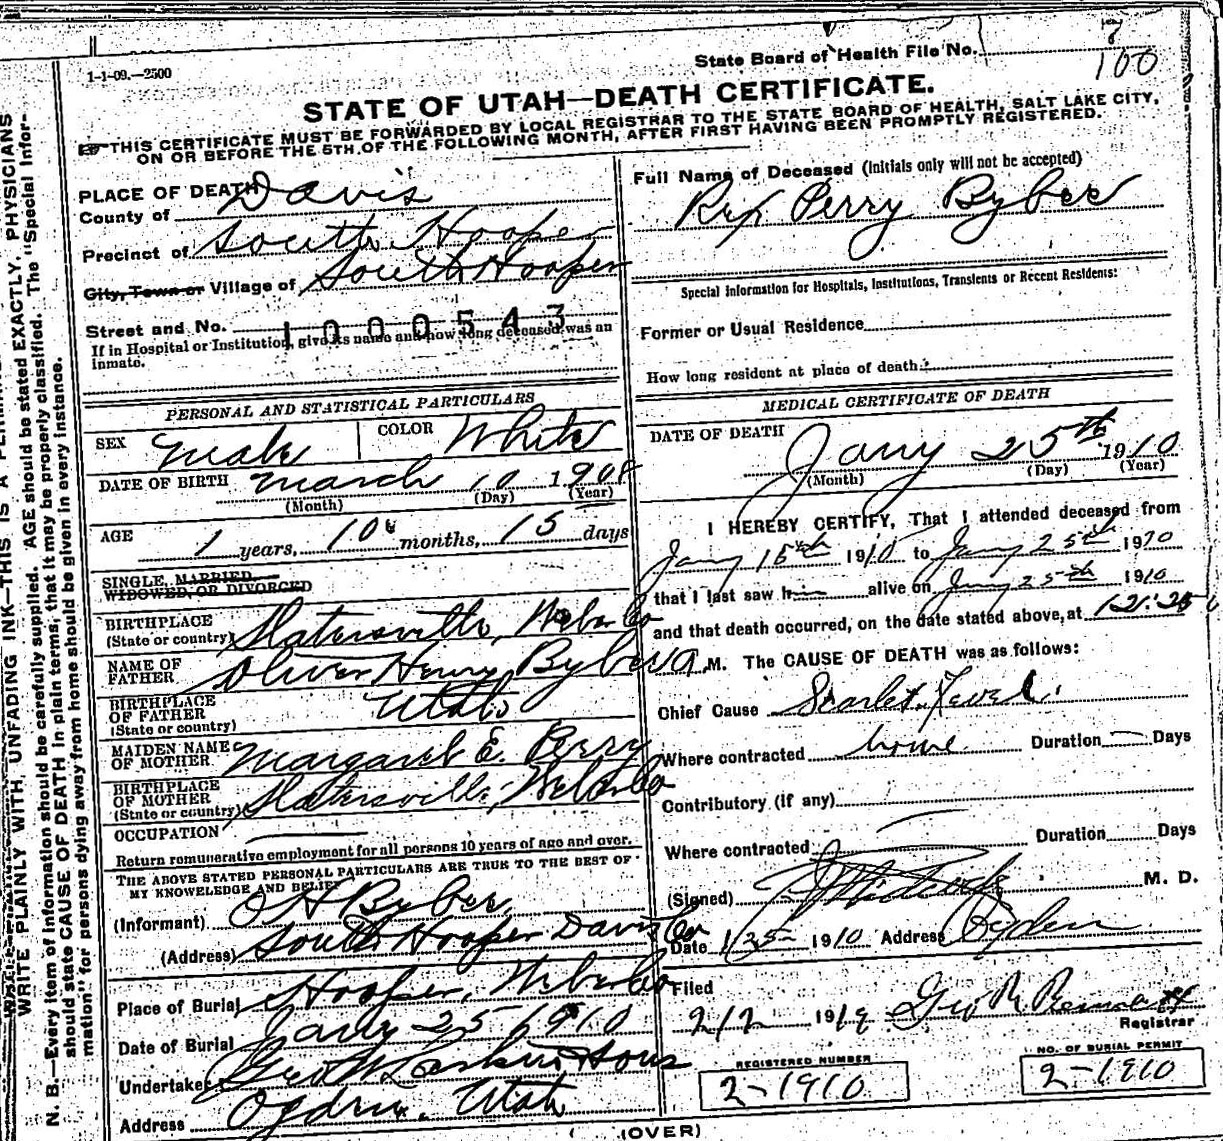 7
State Board of Health File No.
100
1-1-09.—2500
STATE OF UTAH—DEATH CERTIFICATE.
THIS CERTIFICATE MUST BE FORWARDED BY LOCAL REGISTRAR TO THE STATE BOARD OF HEALTH, SALT LAKE CITY,
ON OR BEFORE THE 5TH OF THE FOLLOWING MONTH, AFTER FIRST HAVING BEEN PROMPTLY REGISTERED.
PLACE OF DEATH
County of Davis
Precinct of South Hooper
City, Town or Village of South Hooper
Street and No.
1000543
If in Hospital or Institution, give its name and how long deceased was an
inmate.
PERSONAL AND STATISTICAL PARTICULARS
SEX Male COLOR White
DATE OF BIRTH March 10 1908
(Month) (Day) (Year)
AGE 1 years, 10 months, 15 days
SINGLE, MARRIED
WIDOWED, OR DIVORCED
BIRTHPLACE
(State or country) Slatersville, Weber Co
NAME OF
FATHER Oliver Henry Bybee
BIRTHPLACE
OF FATHER Utah
(State or country)
MAIDEN NAME
OF MOTHER Margaret E. Perry
BIRTHPLACE
OF MOTHER
(State or country) Slatersville, Weber Co
OCCUPATION
Return remunerative employment for all persons 10 years of age and over.
THE ABOVE STATED PERSONAL PARTICULARS ARE TRUE TO THE BEST OF
MY KNOWELEDGE AND BELIEF
(Informant) O H Bybee
(Address) South Hooper Davis Co
Place of Burial Hooper, Weber Co
Date of Burial Jany 25 1910
Undertaker Geo W Larkin & Sons
Address Ogden, Utah
Full Name of Deceased (Initials only will not be accepted)
Rex Perry Bybee
Special Information for Hospitals, Institutions, Transients or Recent Residents:
Former or Usual Residence
How long resident at place of death?
MEDICAL CERTIFICATE OF DEATH
DATE OF DEATH
Jany 25th 1910
(Month) (Day) (Year)
I HEREBY CERTIFY, That I attended deceased from
Jany 15th 1910 to Jany 25th 1910
that I last saw him alive on Jany 25th 1910
and that death occurred, on the date stated above, at 12:25
a M. The CAUSE OF DEATH was as follows:
Chief Cause Scarlet Fever
Where contracted home Duration — Days
Contributory (if any)
Where contracted Duration Days
(Signed) M. D.
Date 1/25 1910 Address Ogden
Filed
2/2 191 Geo
Registrar
REGISTERED NUMBER
2-1910
NO. OF BURIAL PERMIT
2-1910
(OVER)
WRITE PLAINLY WITH UNFADING INK—THIS IS A
N. B.—Every item of information should be carefully supplied. AGE should be stated EXACTLY. PHYSICIANS
should state CAUSE OF DEATH in plain terms, that it may be properly classified. The "Special Infor-
mation" for persons dying away from home should be given in every instance.